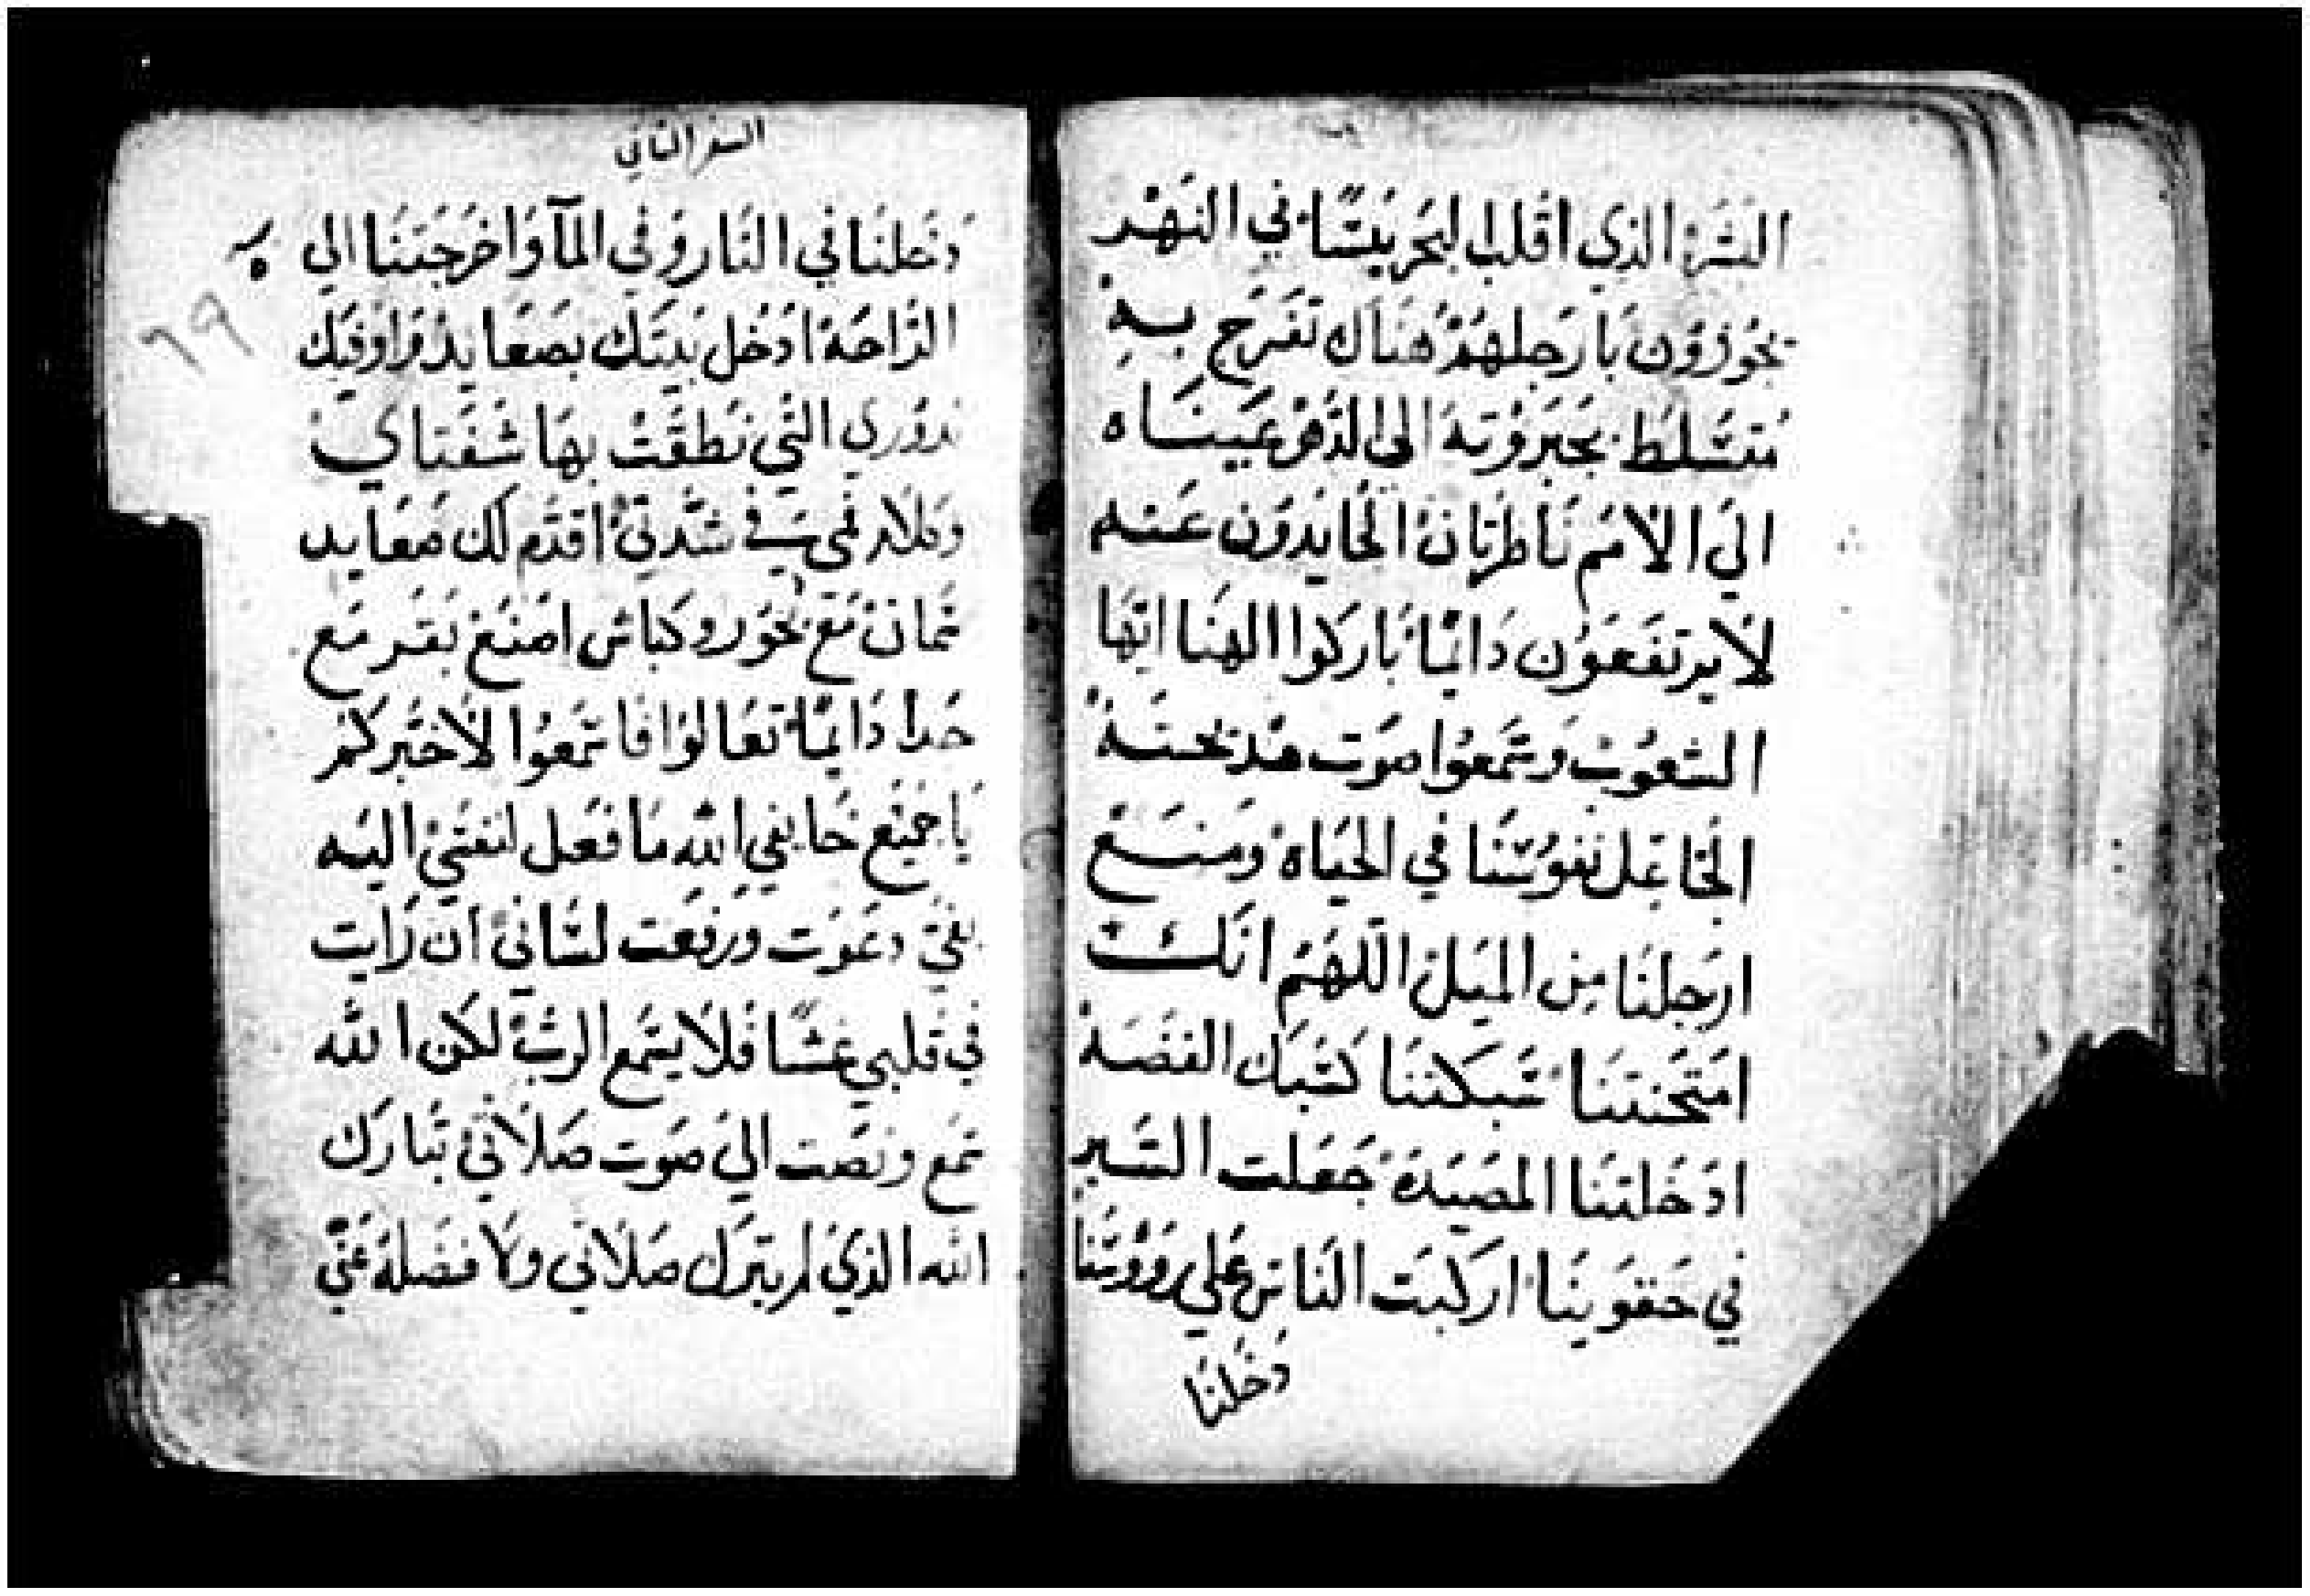 البشر الذي اقلب البحر يبسًا في النهر
يجوزون بارجلهم هناك نفرح به
متسلط بجبروته الي الدهر عيناه
الي الامم ناظرتان الحايدون عنه
لا يرتفعون دائمًا باركوا الهنا ايها
الشعوب وسمعوا صوت مذبحته
الجاعل نفوسنا في الحياة ومنع
ارجلنا من الميل اللهم انك
امتحنتنا سبكتنا كسبك الفضة
ادخلتنا المصيدة جعلت السير
في حقوينا اركبت الناس علي رووسنا
دخلنا
السفر الثاني
دخلنا في النار وفي المآ واخرجتنا الي
الراحة ادخل بيتك بصعايد واوفيك
ندوري التي نطقت بها شفتاي
وكلام فمي في شدتي اقدم لك صعايد
سمان مع بخور وكباش اصنع بقر مع
جدا دائمًا تعالوا فاسمعوا لاخبركم
يا جميع خايفي الله ما فعل لنفسي اليه
بفمي دعوت ورفعت لساني ان رايت
في قلبي غشًا فلا يسمع الرب لكن الله
سمع ونصت الي صوت صلاتي تبارك
الله الذي لم يترك صلاتي ولا فضله عني
٦٩